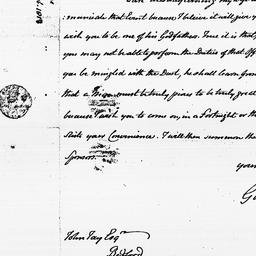 :municate that Event because I believe it will give y
wish you to be one of his Godfathers. True it is that
you may not be able to perform the Duties of that Off
you be mingled with the Dust, he shall learn from
that a must be truly pious to be truly great
because I wish you to come on, in a Fortnight or th
suits your Convenience. I will then summon the
Sponsors.
your
G
John Jay Esqr
Bedford